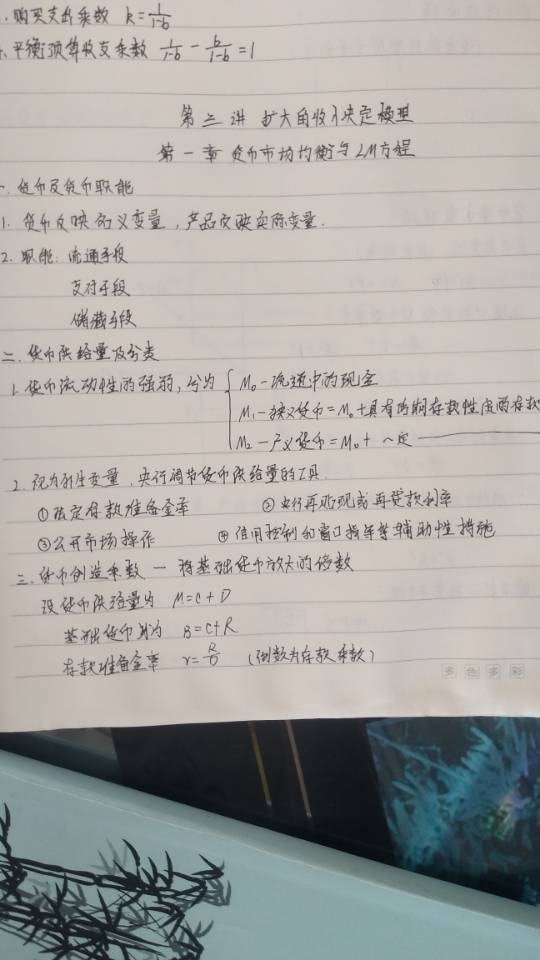 . 购买支出乘数 k=1/(1-b)
. 平衡预算收支乘数 1/(1-b) - b/(1-b) =1
第三讲 扩大的收入决定模型
第一章 货币市场均衡与LM方程
一. 货币及货币职能
1. 货币反映名义变量,产品反映实际变量.
2. 职能: 流通手段
支付手段
储藏手段
二. 货币供给量及分类
1. 货币流动性的强弱,分为 { M₀ - 流通中的现金
M₁ - 狭义货币 = M₀ + 具有活期存款性质的存款
M₂ - 广义货币 = M₀ + ~定 ———
2. 视为外生变量,央行调节货币供给量的工具.
①法定存款准备金率 ②央行再贴现或再贷款利率
③公开市场操作 ④信用控制和窗口指导等辅助性措施
三. 货币创造乘数 — 将基础货币放大的倍数
设货币供给量为 M=C+D
基础货币为 B=C+R
存款准备金率 r=R/D (倒数为存款乘数)
多色多彩